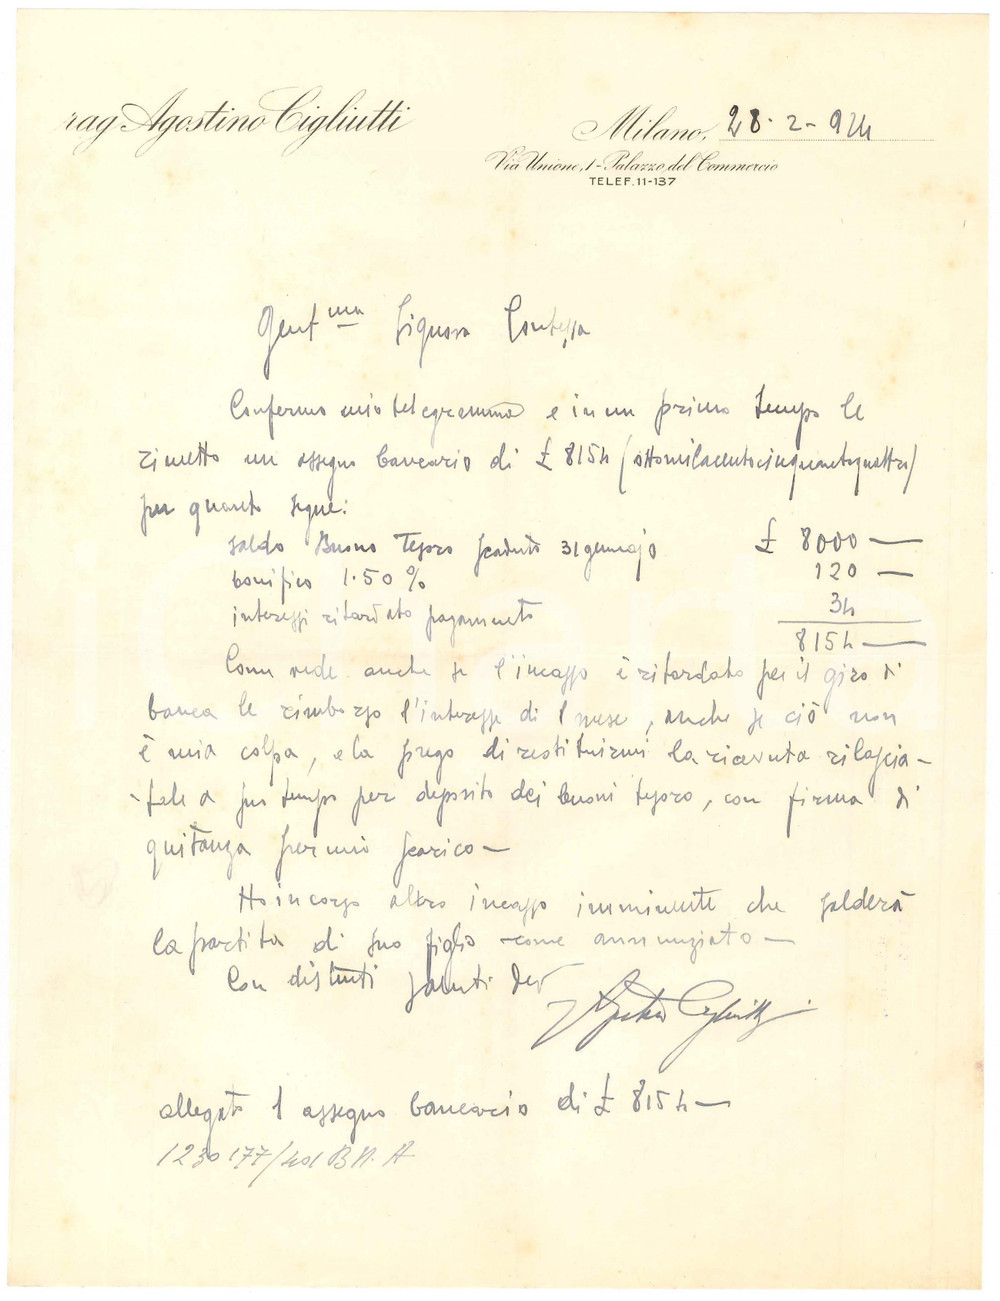 rag Agostino Cigliutti
Milano, 28-2-924
Via Unione, 1 - Palazzo del Commercio
TELEF. 11-137
Gent.ma Signora Contessa
Confermo mio telegramma e in un primo tempo le
rimetto un assegno bancario di £ 8154 (ottomilacentocinquantaquattro)
per quanto segue:
saldo Buono Tesoro scaduto 31 gennajo £ 8000 —
bonifico 1.50 % 120 —
interessi ritardato pagamento 34
8154 —
Come vede anche se l'incasso è ritardato per il giro di
banca le rimborso l'interesse di 1 mese, anche se ciò non
è mia colpa, e la prego di restituirmi la ricevuta rilascia-
-tale a suo tempo per deposito dei buoni tesoro, con firma di
quitanza per mio scarico —
Ho in corso altro incasso imminente che salderà
la partita di suo figlio come annunziato —
Con distinti saluti dev
Agostino Cigliutti
allegato 1 assegno bancario di £ 8154 —
1230177/401 B N. A